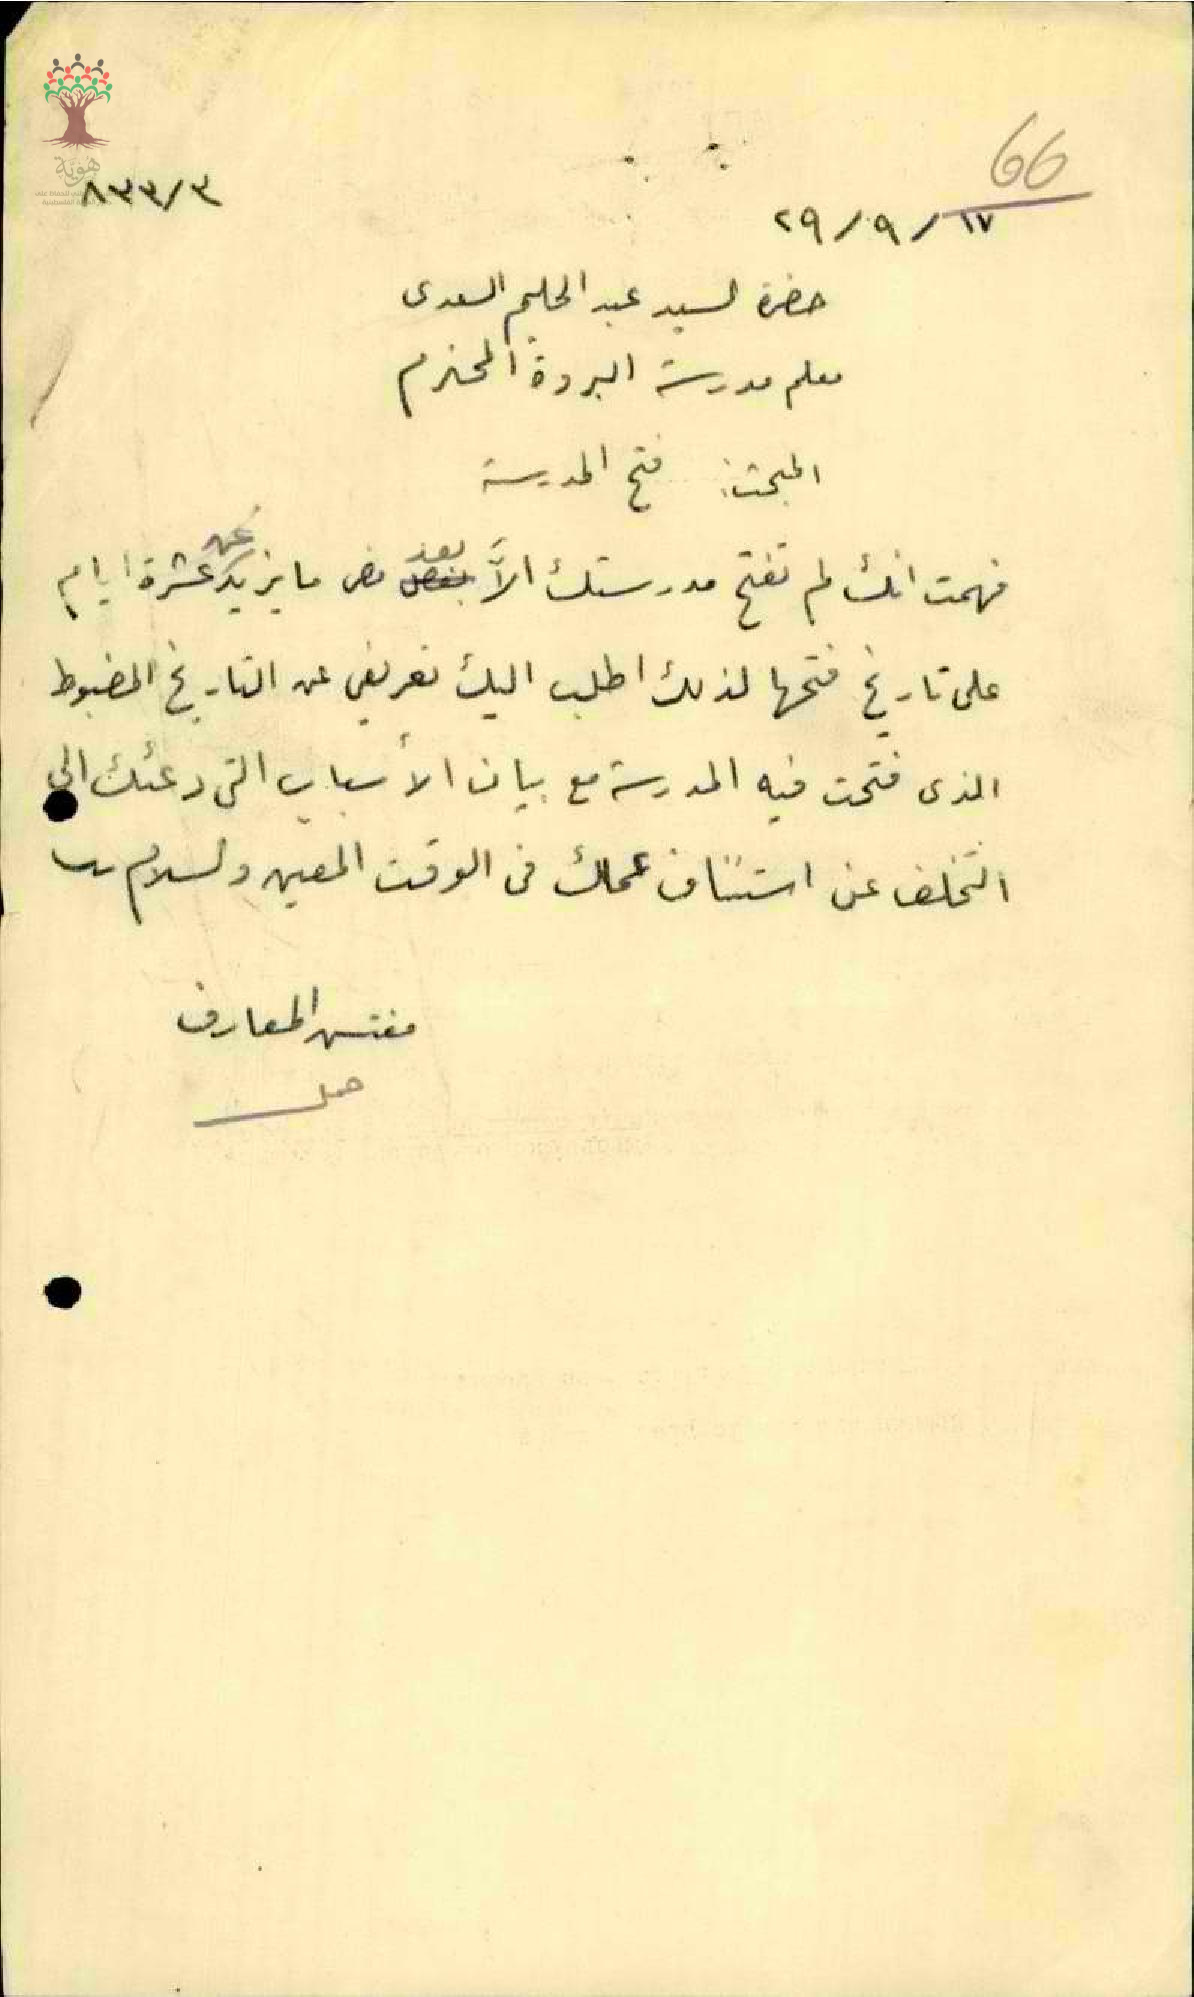 هوية
66
٨٣٣/٣
٢٩/٩/١٧
حضرة السيد عبد الحليم السعدى
معلم مدرسة البروة المحترم
المبحث: فتح المدرسة
فهمت انك لم تفتح مدرستك الاَّ بعد مضى ما يزيد عن عشرة ايام
على تاريخ فتحها لذلك اطلب اليك تعريفى عن التاريخ المضبوط
الذى فتحت فيه المدرسة مع بيان الأسباب التى دعتك الى
التخلف عن استئناف عملك فى الوقت المعين والسلام
مفتش المعارف